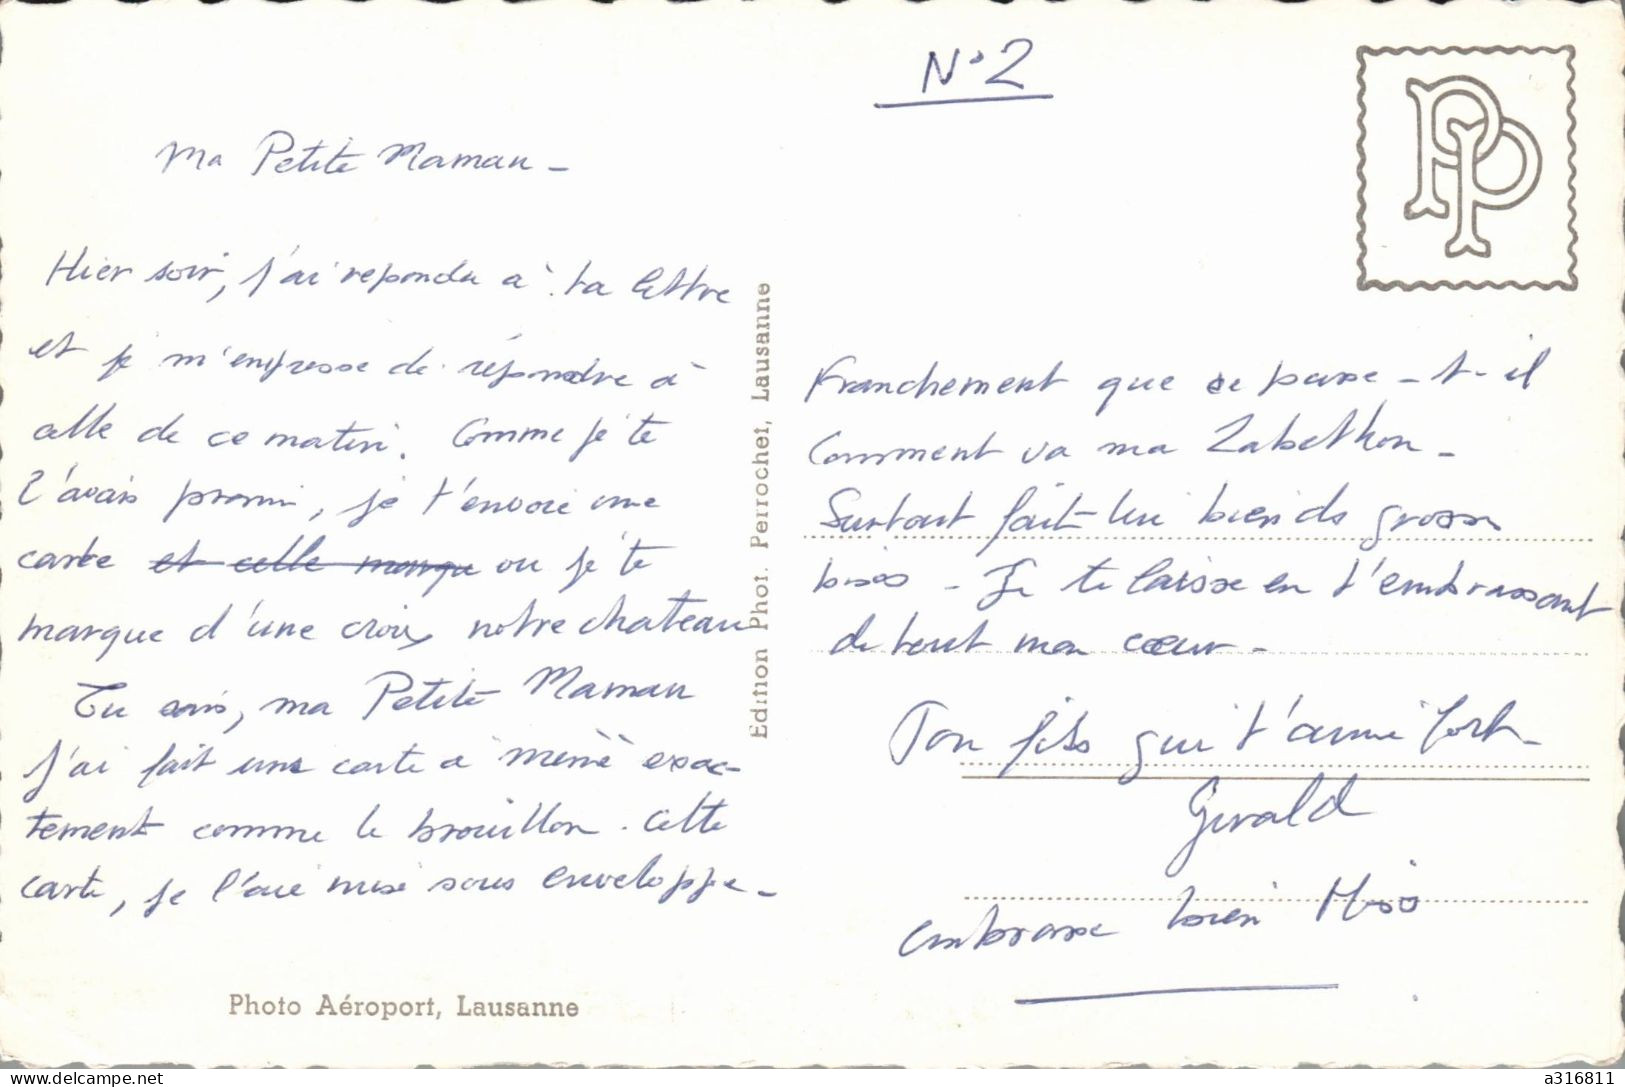 N°2
Ma Petite Maman -
Hier soir, j'ai repondu a ta lettre
et je m'empresse de répondre à
celle de ce matin. Comme je te
l'avais promi, je t'envoie une
carte et celle marque ou je te
marque d'une croix notre chateau
Tu sais, ma Petite Maman
j'ai fait une carte a même exac-
tement comme le brouillon. Cette
carte, je l'aie mise sous enveloppe -
Photo Aéroport, Lausanne
Edition Phot. Perrochet, Lausanne
PP
Franchement que se passe-t-il
Comment va ma Zabethon -
Surtout fait-lui bien de grosses
bises - Je te laisse en t'embrassant
de tout mon cœur -
Ton fils qui t'aime fort -
Gerald
embrasse bien
a316811